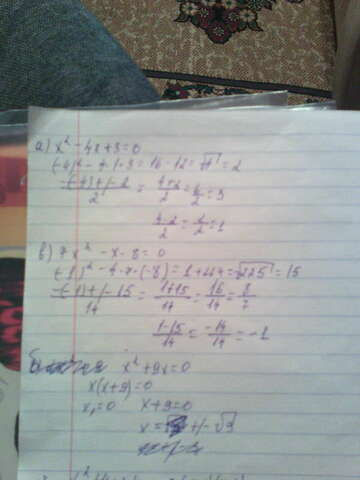 а) x² - 4x + 3 = 0
(-4)² - 4·1·3 = 16 - 12 = √4 = 2
-(-4) +/- 2 / 2 = 4+2 / 2 = 6/2 = 3
4-2 / 2 = 2/2 = 1
в) 7x² - x - 8 = 0
(-1)² - 4·7·(-8) = 1 + 224 = √225 = 15
-(-1) +/- 15 / 14 = 1+15 / 14 = 16/14 = 8/7
1-15 / 14 = -14/14 = -1
x² + 9x = 0
x(x+9) = 0
x₁ = 0 x+9=0
x = +/- √9